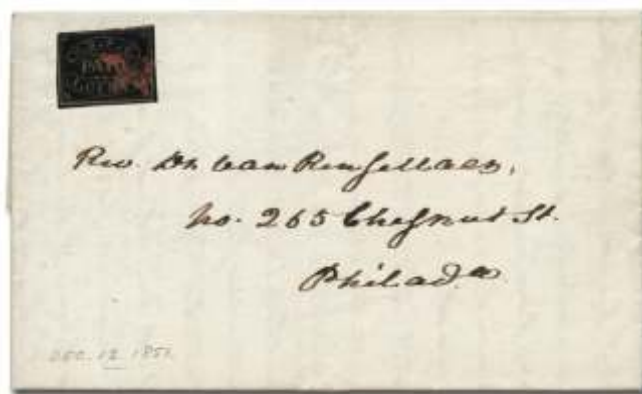 PAID
Rev. Dr. Van Rensellaer,
No. 265 Chesnut St.
Philada.
DEC. 12 1851